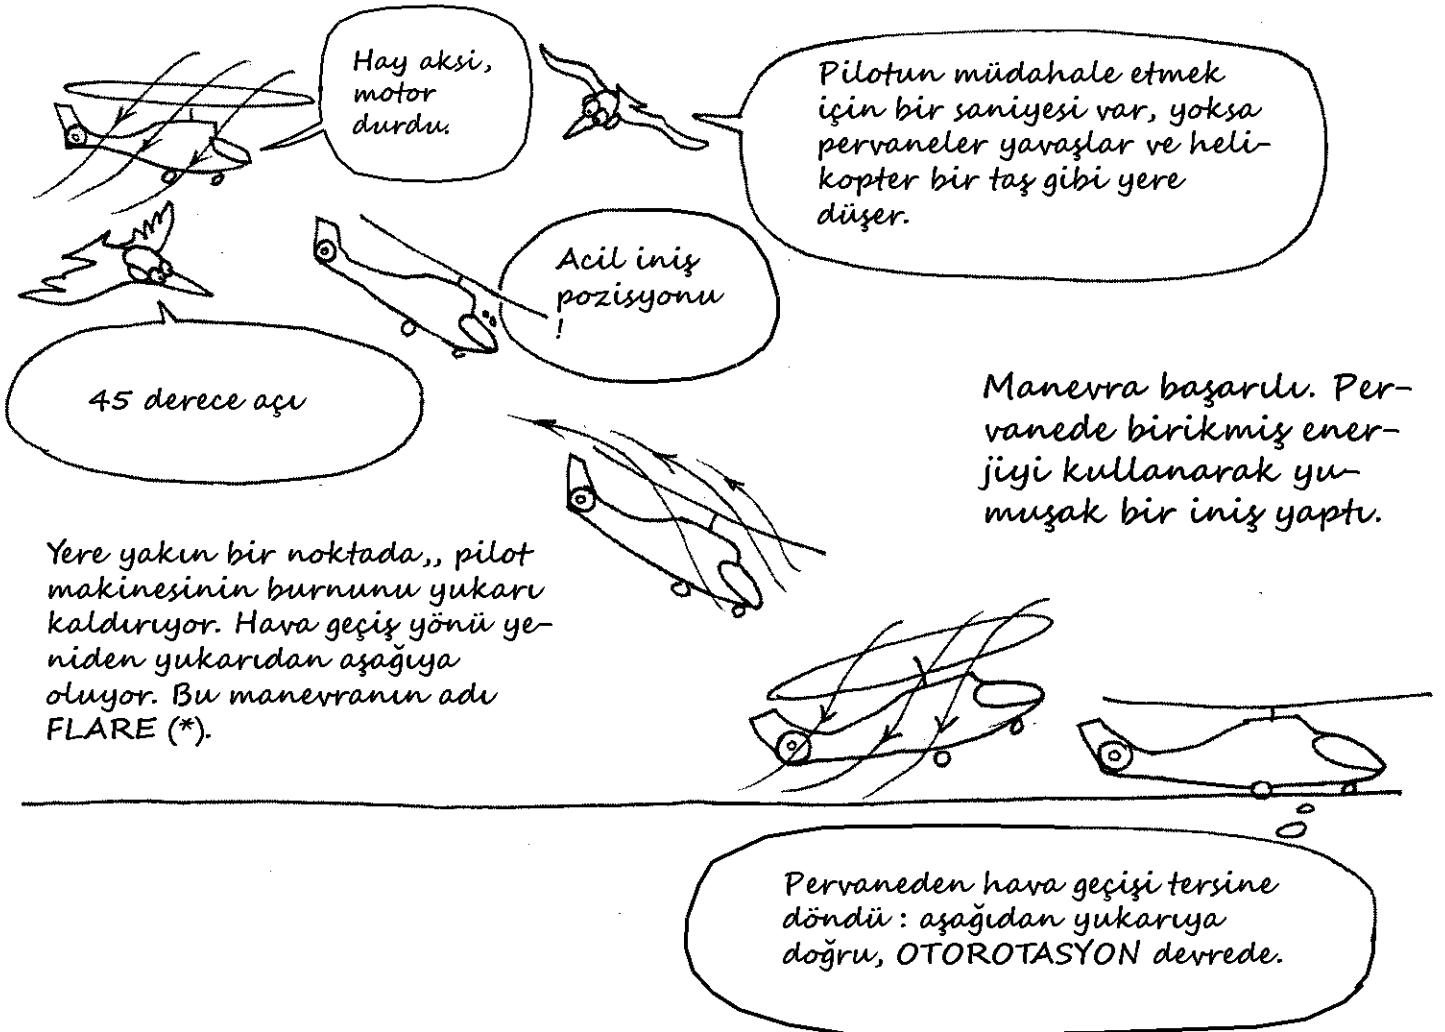 Hay aksi,
motor
durdu.
Pilotun müdahale etmek
için bir saniyesi var, yoksa
pervaneler yavaşlar ve heli-
kopter bir taş gibi yere
düşer.
Acil iniş
pozisyonu
!
45 derece açı
Manevra başarılı. Per-
vanede birikmiş ener-
jiyi kullanarak yu-
muşak bir iniş yaptı.
Yere yakın bir noktada,, pilot
makinesinin burnunu yukarı
kaldırıyor. Hava geçiş yönü ye-
niden yukarıdan aşağıya
oluyor. Bu manevranın adı
FLARE (*).
Pervaneden hava geçişi tersine
döndü : aşağıdan yukarıya
doğru, OTOROTASYON devrede.